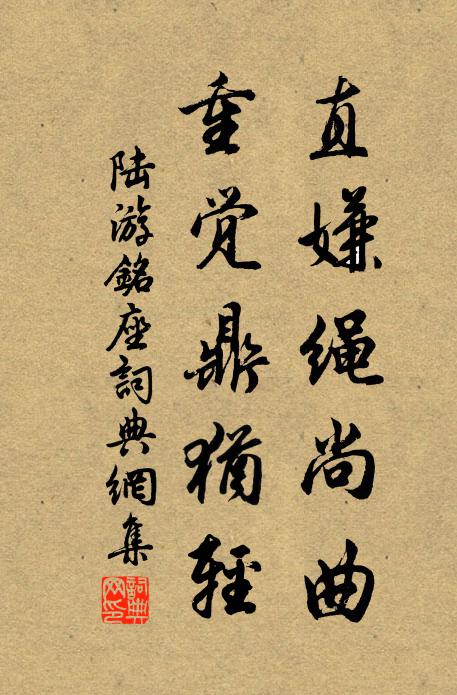 直嫌绳尚曲
重觉鼎犹轻
陆游銘座詞典網集
詞典网印